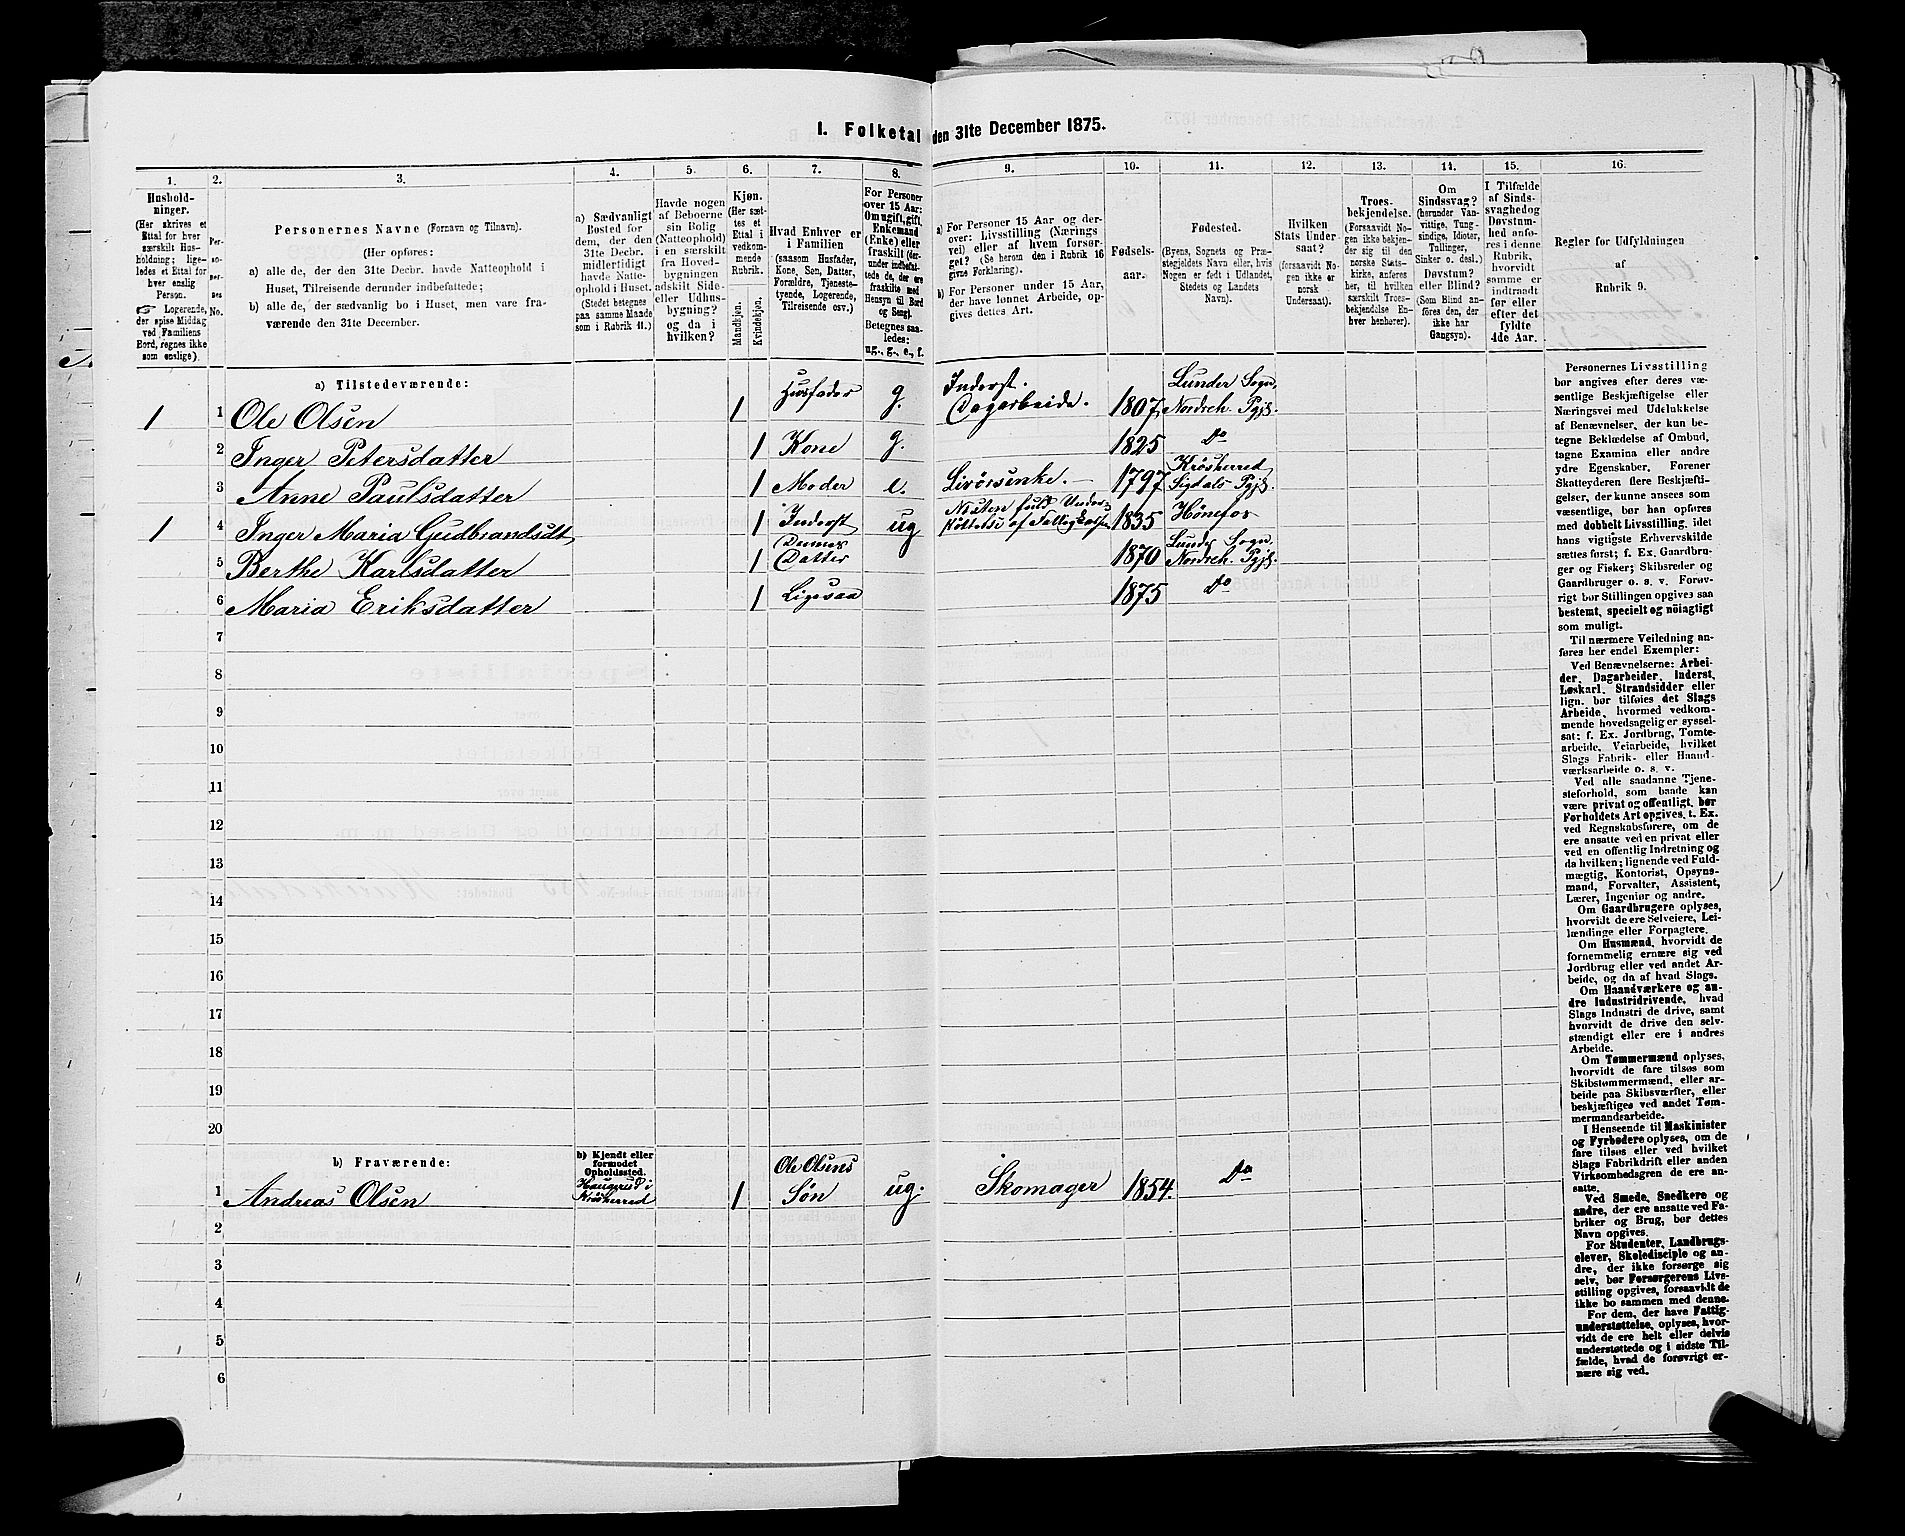 I. Folketal den 31te December 1875.
1.
2.
3.
4.
5.
6.
7.
8.
9.
10.
11.
12.
13.
14.
15.
16.
Hushold-
ninger.
(Her skrives et
Ettal for hver
særskilt Hus-
holdning; lige-
ledes et Ettal for
hver enslig
Person.
☞ Logerende,
der spise Middag
ved Familiens
Bord, regnes ikke
som enslige).
Per-
so-
ner-
nes
No.
Personernes Navne (Fornavn og Tilnavn).
(Her opføres:
a) alle de, der den 31te Decbr. havde Natteophold i
Huset, Tilreisende derunder indbefattede;
b) alle de, der sædvanlig bo i Huset, men vare fra-
værende den 31te December.
a) Sædvanligt
Bosted for
dem, der den
31te Decbr.
midlertidigt
havde Natte-
ophold i Huset.
(Stedet betegnes
paa samme Maade
som i Rubrik 11.)
Havde nogen
af Beboerne
sin Bolig
(Natteophold)
i en særskilt
fra Hoved-
bygningen
adskilt Side-
eller Udhus-
bygning?
og da i
hvilken?
Kjøn.
(Her sæt-
tes et
Ettal i
vedkom-
mende
Rubrik.
Mandkjøn.
Kvindekjøn.
Hvad Enhver er
i Familien
(saasom Husfader,
Kone, Søn, Datter,
Forældre, Tjeneste-
tyende, Logerende,
Tilreisende osv.)
For Personer
over 15 Aar:
Om ugift, gift,
Enkemand
(Enke) eller
fraskilt (der-
under indbefat-
tede de, der ere
fraskilte med
Hensyn til Bord
og Seng).
Betegnes saa-
ledes:
ug., g., e., f.
a) For Personer 15 Aar og der-
over: Livsstilling (Nærings
vei) eller af hvem forsør-
get? (Se herom den i Rubrik 16
givne Forklaring).
b) For Personer under 15 Aar,
der have lønnet Arbeide, op-
gives dettes Art.
Fødsels-
aar.
Fødested.
(Byens, Sognets og Præ-
stegjeldets Navn eller, hvis
Nogen er født i Udlandet,
Stedets og Landets
Navn).
Hvilken
Stats Under
saat?
(forsaavidt No-
gen ikke er
norsk
Undersaat).
Troes-
bekjendelse.
(Forsaavidt No-
gen ikke bekjen-
der sig til den
norske Stats-
kirke, anføres
her, til hvilken
særskilt Troes-
bekjendelse En-
hver henhører).
Om
Sindssvag?
(herunder Van-
vittige, Tung-
sindige, Idioter,
Tullinger,
Sinker o. desl.)
Døvstum?
eller Blind?
(Som Blind an-
føres den, der
ikke har
Gangsyn).
I Tilfælde
af Sinds-
svaghed og
Døvstum-
hed, anfø-
res i denne
Rubrik,
hvorvidt
samme er
indtraadt
før eller
efter det
fyldte
4de Aar.
Regler for Udfyldningen
af
Rubrik 9.
a) Tilstedeværende:
1 1 Ole Olsen 1 Husfader g. Inderst. Dagarbeide. 1807, Lunder Sogn, Nordreh. Pgjl.
2 Inger Petersdatter 1 Kone g. 1825 Do
3 Anne Paulsdatter 1 Moder e. Livörsenke. 1797 Krösherred, Sigdals Pgjl.
1 4 Inger Maria Gudbrandsdt, 1 Inderst ug Næsten fuld Under- stöttelse af Fattigkassen 1835 Hönefos
5 Berthe Karlsdatter 1 Dennes Datter 1870 Lunder Sogn, Nordreh. Pgjl.
6 Maria Eriksdatter 1 Ligesaa 1875 Do
7
8
9
10
11
12
13
14
15
16
17
18
19
20
b) Fraværende:
b) Kjendt eller
formodet
Opholdssted.
1 Andreas Olsen Haugerud i Krösherred 1 Ole Olsens Søn ug. Skomager 1854. Do
2
3
4
5
6
Personernes Livsstilling
bør angives efter deres væ-
sentlige Beskjæftigelse eller
Næringsvei med Udelukkelse
af Benævnelser, der kun be-
tegne Beklædelse af Ombud,
tagne Examina eller andre
ydre Egenskaber. Forener
Skatteyderen flere Beskjæfti-
gelser, der kunne ansees som
væsentlige, bør han opføres
med dobbelt Livsstilling, idet
hans vigtigste Erhvervskilde
sættes først; f. Ex. Gaardbru-
ger og Fisker; Skibsreder og
Gaardbruger o. s. v. Forøv-
rigt bør Stillingen opgives saa
bestemt, specielt og nöiagtigt
som muligt.
Til nærmere Veiledning an-
føres her endel Exempler:
Ved Benævnelserne: Arbei-
der, Dagarbeider, Inderst,
Løskarl, Strandsidder eller
lign. bør tilføies det Slags
Arbeide, hvormed vedkom-
mende hovedsagelig er syssel-
sat; f. Ex. Jordbrug, Tomte-
arbeide, Veiarbeide, hvilket
Slags Fabrik- eller Haand-
værksarbeide o. s. v.
Ved alle saadanne Tjene-
steforhold, som baade kan
være privat og offentligt, bør
Forholdets Art opgives, t. Ex.
ved Regnskabsførere, om de
ere ansatte ved en privat eller
ved en offentlig Indretning og
da hvilken; lignende ved Fuld-
mægtig, Kontorist, Opsyns-
mand, Forvalter, Assistent,
Lærer, Ingeniør og andre.
Om Gaardbrugere oplyses,
hvorvidt de ere Selveiere, Lei-
lændinge eller Forpagtere.
Om Husmænd, hvorvidt de
fornemmelig ernære sig ved
Jordbrug eller ved andet Ar-
beide, og da af hvad Slags.
Om Haandværkere og an-
dre Industridrivende, hvad
Slags Industri de drive, samt
hvorvidt de drive den selv-
stændigt eller ere i andres
Arbeide.
Om Tømmermænd oplyses,
hvorvidt de fare tilsøs som
Skibstømmermænd, eller ar-
beide paa Skibsværfter, eller
beskjæftiges ved andet Tøm-
mermandsarbeide.
I Henseende til Maskinister
og Fyrbødere oplyses, om de
fare tilsøs eller ved hvilket
Slags Fabrikdrift eller anden
Virksomhedsgren de ere an-
satte.
Ved Smede, Snedkere og
andre, der ere ansatte ved Fa-
briker og Brug, bør dettes
Navn opgives.
For Studenter, Landbrugs-
elever, Skoledisciple og an-
dre, der ikke forsørge sig
selv, bør Forsørgerens Livs-
stilling opgives, forsaavidt de
ikke bo sammen med denne.
For dem, der have Fattig-
understøttelse, oplyses, hvor-
vidt de ere helt eller delvis
understøttede og i sidste Til-
fælde, hvad de forøvrigt er-
nære sig ved.